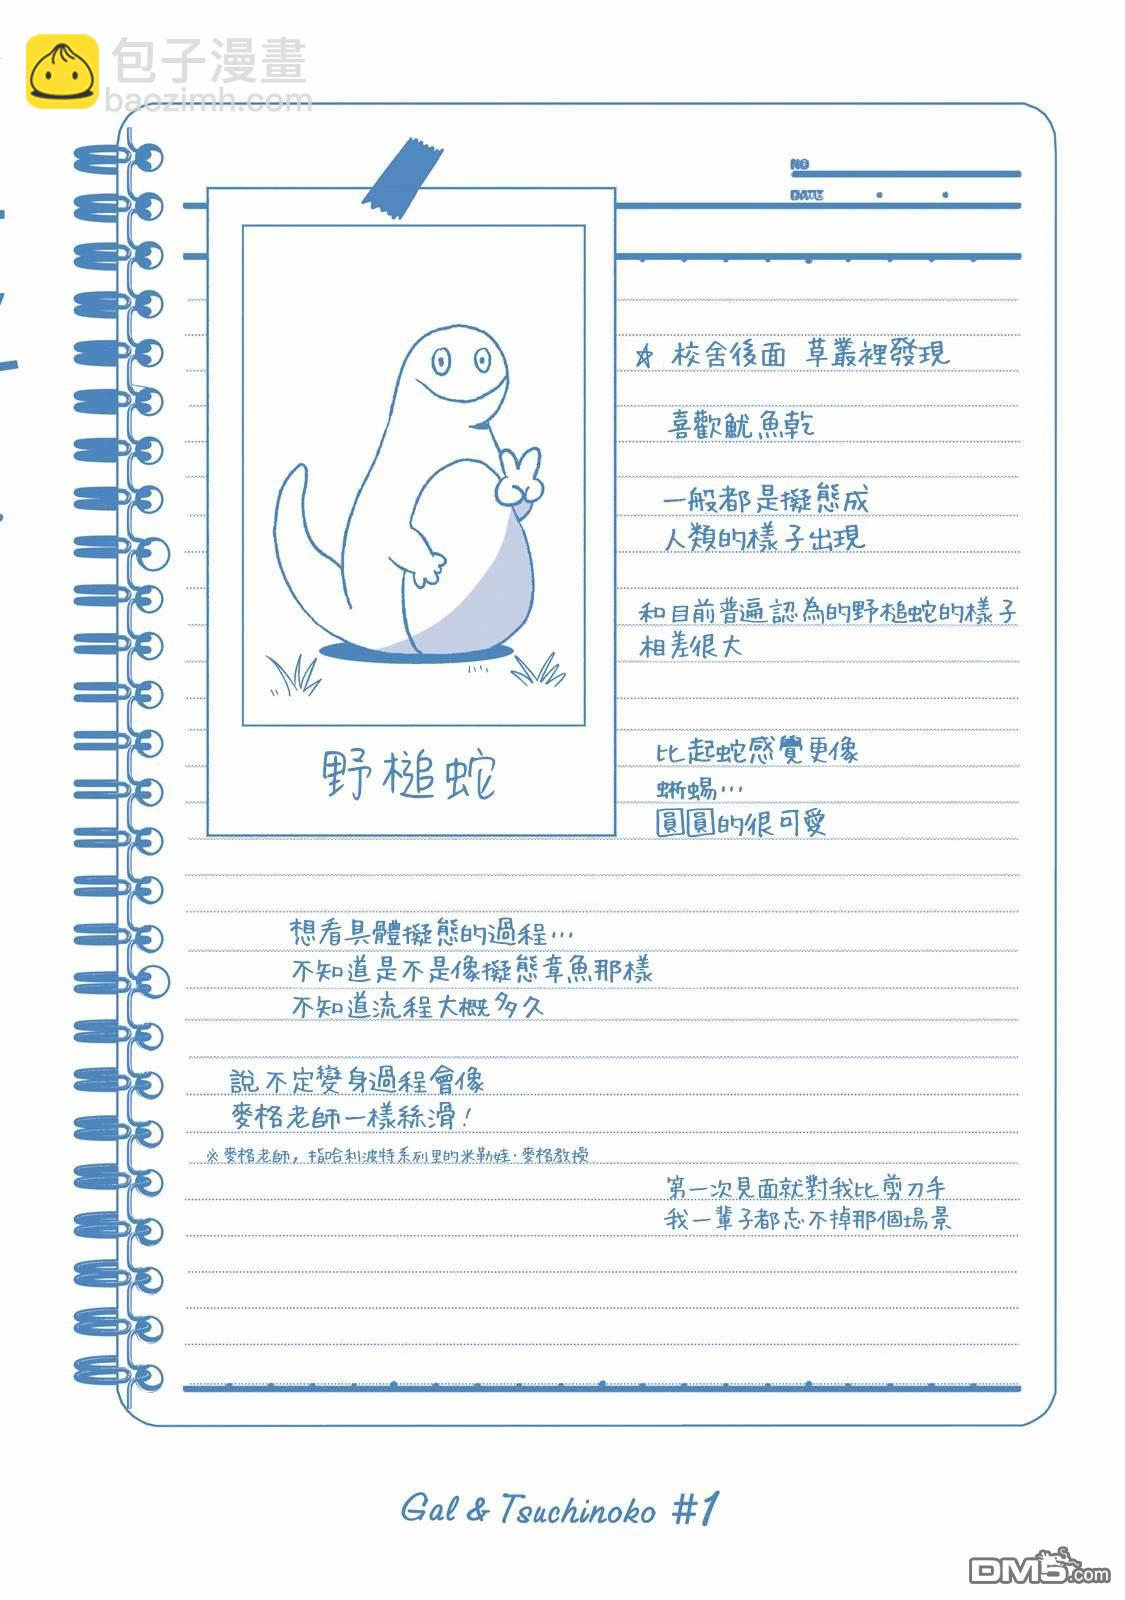 包子漫畫
baozimh.com
NO
DATE
☆ 校舍後面 草叢裡發現
喜歡魷魚乾
一般都是擬態成
人類的樣子出現
和目前普遍認為的野槌蛇的樣子
相差很大
野槌蛇
比起蛇感覺更像
蜥蜴…
圓圓的很可愛
想看具體擬態的過程…
不知道是不是像擬態章魚那樣
不知道流程大概多久
說不定變身過程會像
麥格老師一樣絲滑！
※麥格老師，指哈利波特系列里的米勒娃·麥格教授
第一次見面就對我比剪刀手
我一輩子都忘不掉那個場景
Gal & Tsuchinoko #1
DM5.com